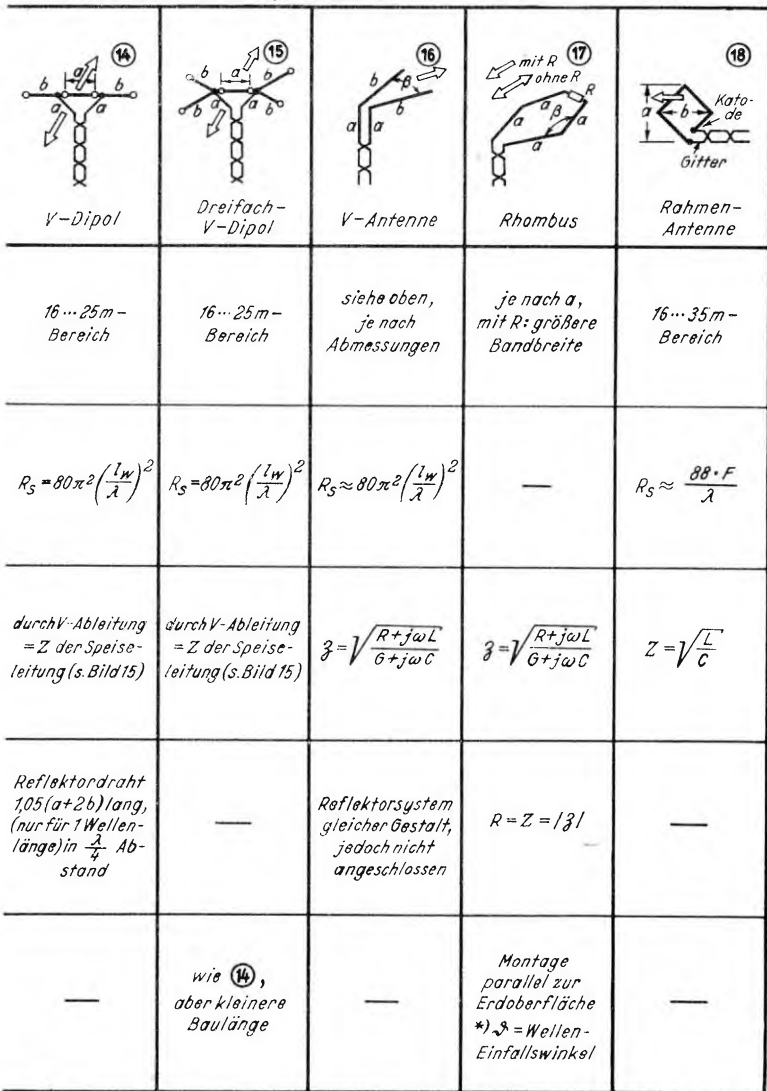 14
a
b
b
a
a
V-Dipol
15
a
b
b
a
a
b
b
Dreifach-
V-Dipol
16
b
β
b
a
a
V-Antenne
mit R
17
ohne R
R
a
a
β
a
a
Rhombus
18
a
b
Kato-
de
Gitter
Rahmen-
Antenne
16...25m-
Bereich
16...25m-
Bereich
siehe oben,
je nach
Abmessungen
je nach a,
mit R: größere
Bandbreite
16...35m-
Bereich
R_S = 80π²(l_W/λ)²
R_S = 80π²(l_W/λ)²
R_S ≈ 80π²(l_W/λ)²
—
R_S ≈ 88·F/λ
durch V-Ableitung
= Z der Speise-
leitung (s. Bild 15)
durch V-Ableitung
= Z der Speise-
leitung (s. Bild 15)
𝔷 = √((R+jωL)/(G+jωC))
𝔷 = √((R+jωL)/(G+jωC))
Z = √(L/C)
Reflektordraht
1,05(a+2b) lang,
(nur für 1 Wellen-
länge) in λ/4 Ab-
stand
—
Reflektorsystem
gleicher Gestalt,
jedoch nicht
angeschlossen
R = Z = |𝔷|
—
—
wie 14,
aber kleinere
Baulänge
—
Montage
parallel zur
Erdoberfläche
*) ϑ = Wellen-
Einfallswinkel
—